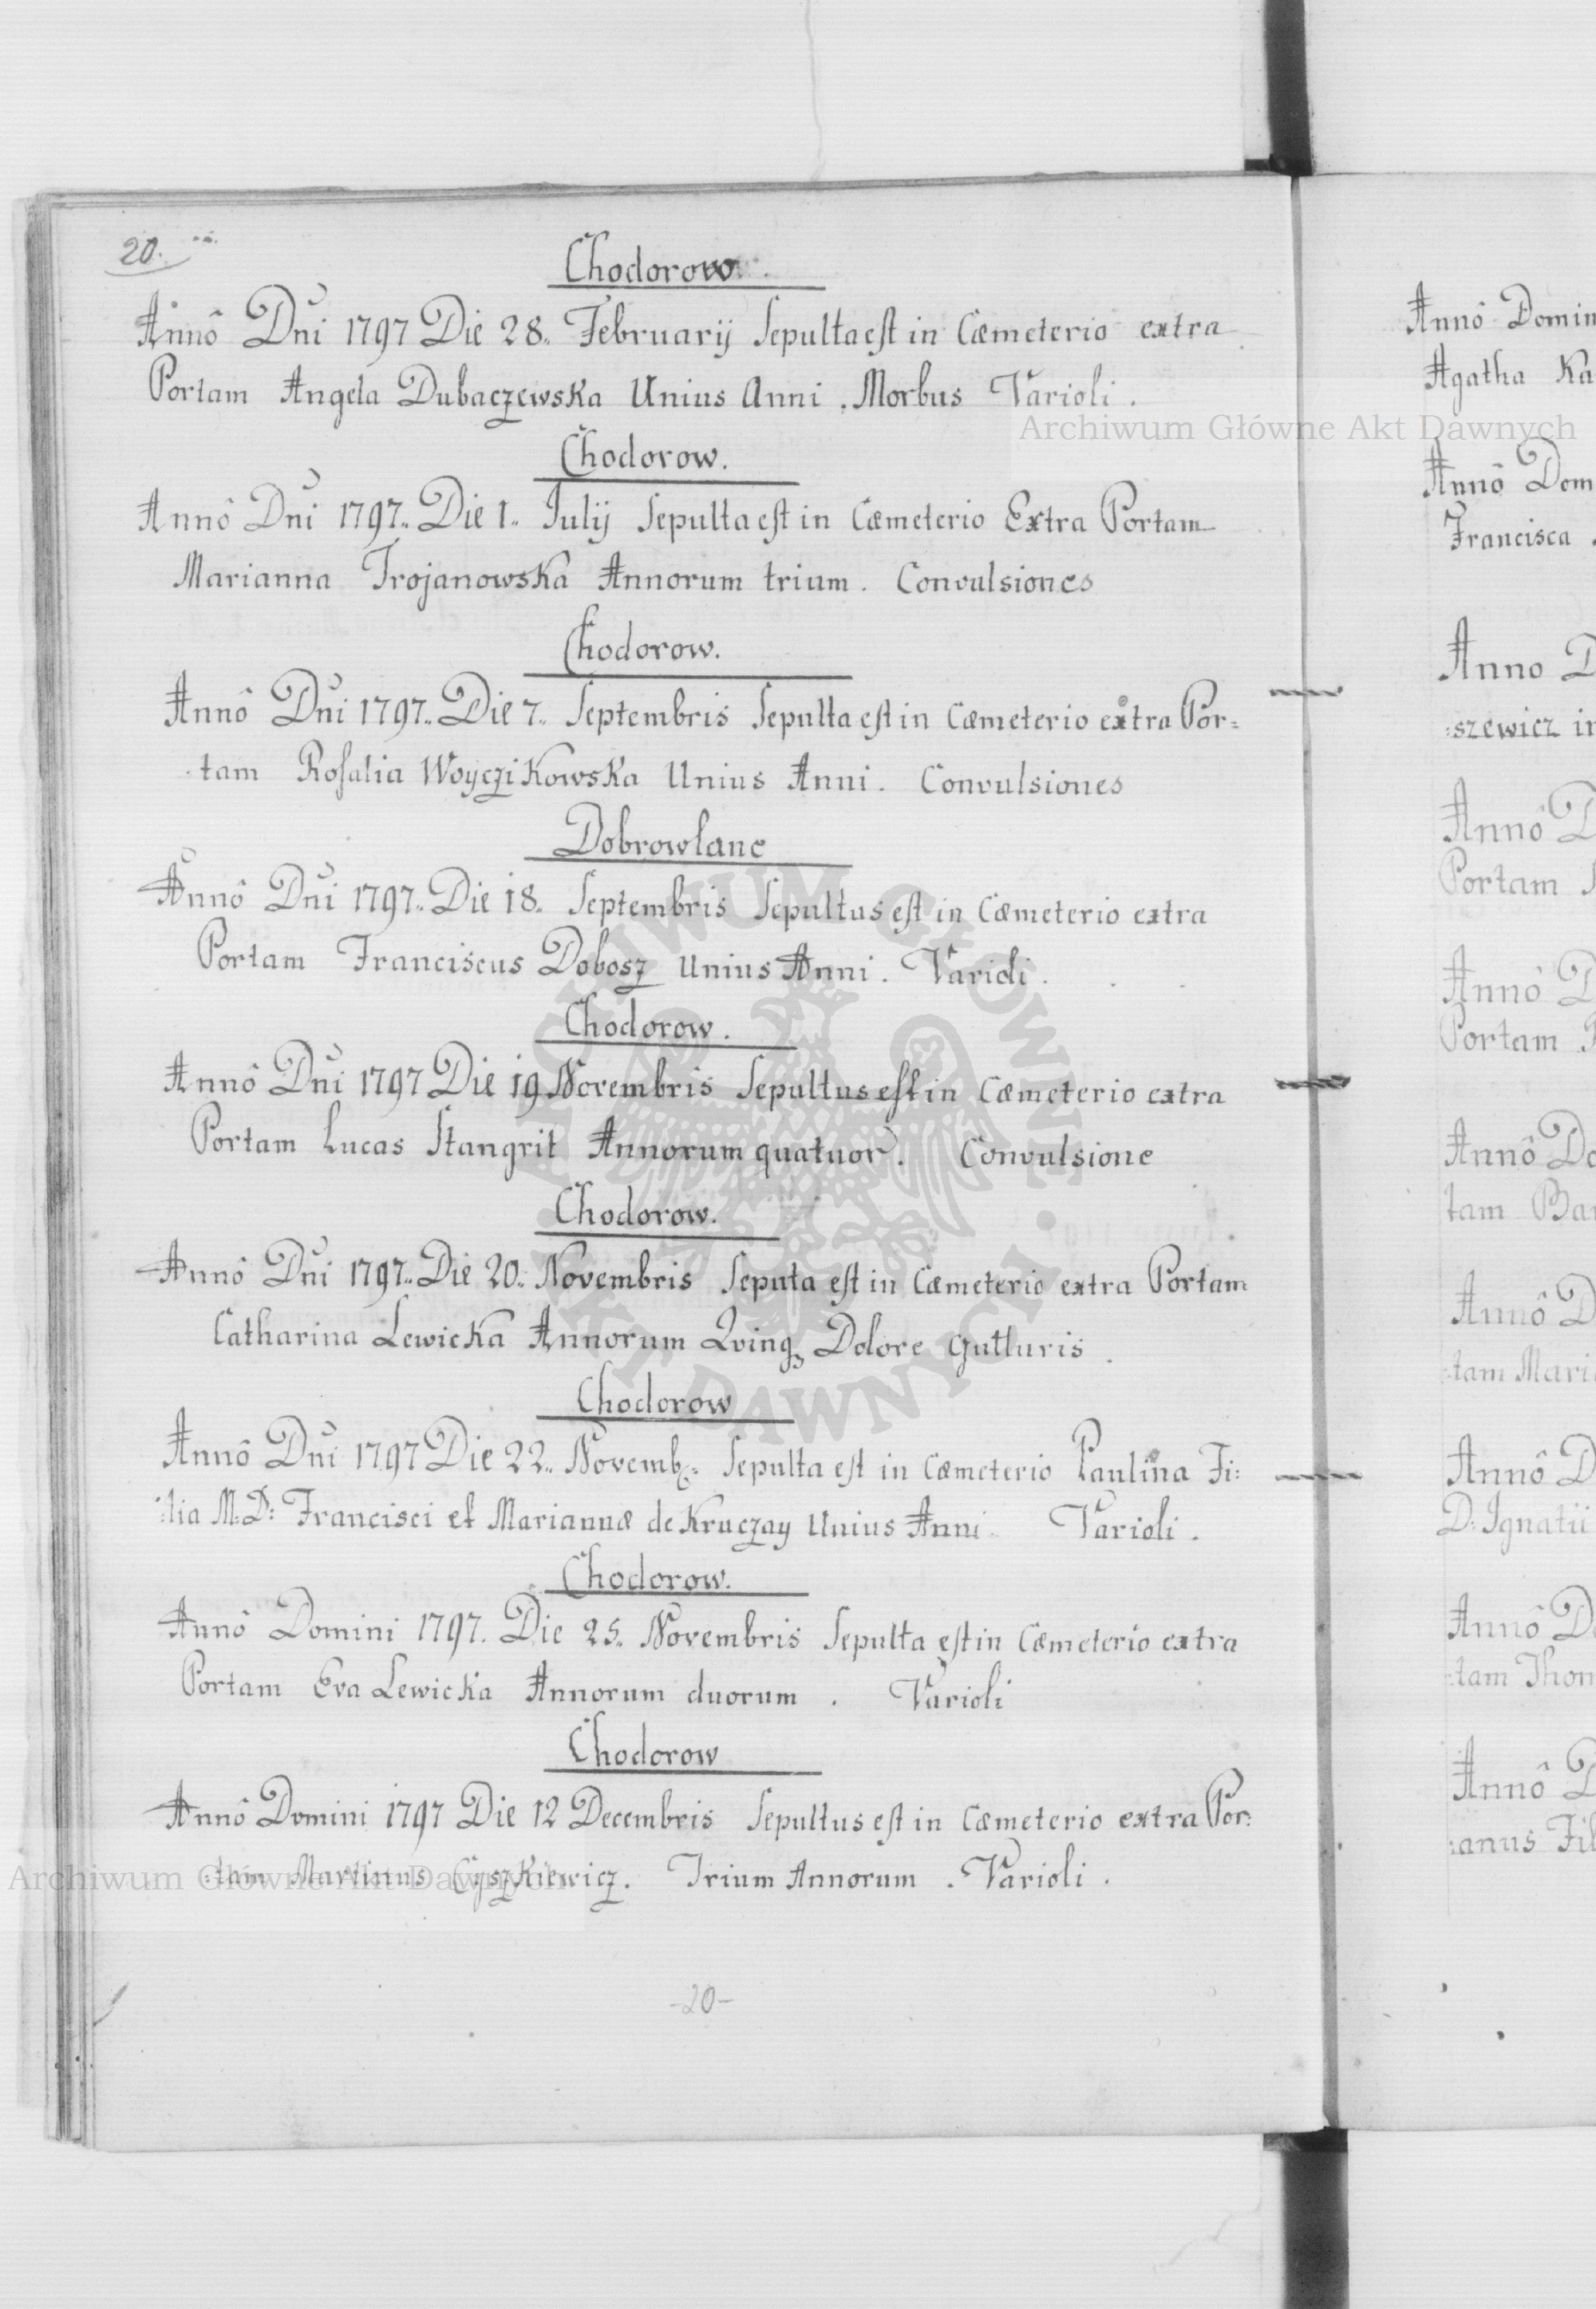 20.
Chodorow.
Annô Dni 1797 Die 28.. Februarij Sepulta est in Cæmeterio extra
Portam Angela Dubaczewska Unius Anni. Morbus Varioli.
Chodorow.
Annô Dni 1797.. Die 1.. Julij Sepulta est in Cæmeterio Extra Portam
Marianna Trojanowska Annorum trium. Convulsiones
Chodorow.
Annô Dni 1797.. Die 7.. Septembris Sepulta est in Cæmeterio extra Por=
tam Rosalia Woyczikowska Unius Anni. Convulsiones
Dobrowlane
Annô Dni 1797.. Die 18.. Septembris Sepultus est in Cæmeterio extra
Portam Franciscus Dobosz Unius Anni. Varioli.
Chodorow.
Annô Dni 1797 Die 19 Novembris Sepultus est in Cæmeterio extra
Portam Lucas Stangrit Annorum quatuor. Convulsione
Chodorow.
Annô Dni 1797.. Die 20.. Novembris Seputa est in Cæmeterio extra Portam
Catharina Lewicka Annorum Dolore Gutturis.
Chodorow
Annô Dni 1797 Die 22.. Novemb: Sepulta est in Cæmeterio Paulina Fi:
:lia M:D: Francisci et Mariannæ de Kruczay Unius Anni Varioli.
Chodorow.
Annô Domini 1797. Die 25.. Novembris Sepulta est in Cæmeterio extra
Portam Eva Lewicka Annorum duorum. Varioli
Chodorow
Annô Domini 1797 Die 12 Decembris Sepultus est in Cæmeterio extra Por:
:tam Martinus Cyszkiewicz. Trium Annorum. Varioli.
-20-
Annô Domin
Agatha Ka
Annô Dom
Francisca
Anno D
:szewicz in
Annô D
Portam
Annô D
Portam
Annô Do
tam Bar
Annô D
:tam Mari
Annô D
D: Ignatii
Annô Do
:tam Thom
Annô D
:anus Fil
Archiwum Główne Akt Dawnych
ARCHIWUM GŁÓWNE AKT DAWNYCH
Archiwum Główne Akt Dawnych